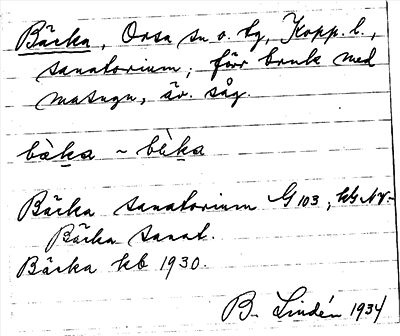 Bäcka, Orsa sn o. tg, Kopp. l.,
sanatorium; förr bruk med
masugn, äv. såg.
bàka ~ bèka
Bäcka sanatorium G 103; kb
Bäcka sanat.
Bäcka kb 1930.
B. Lindén 1934